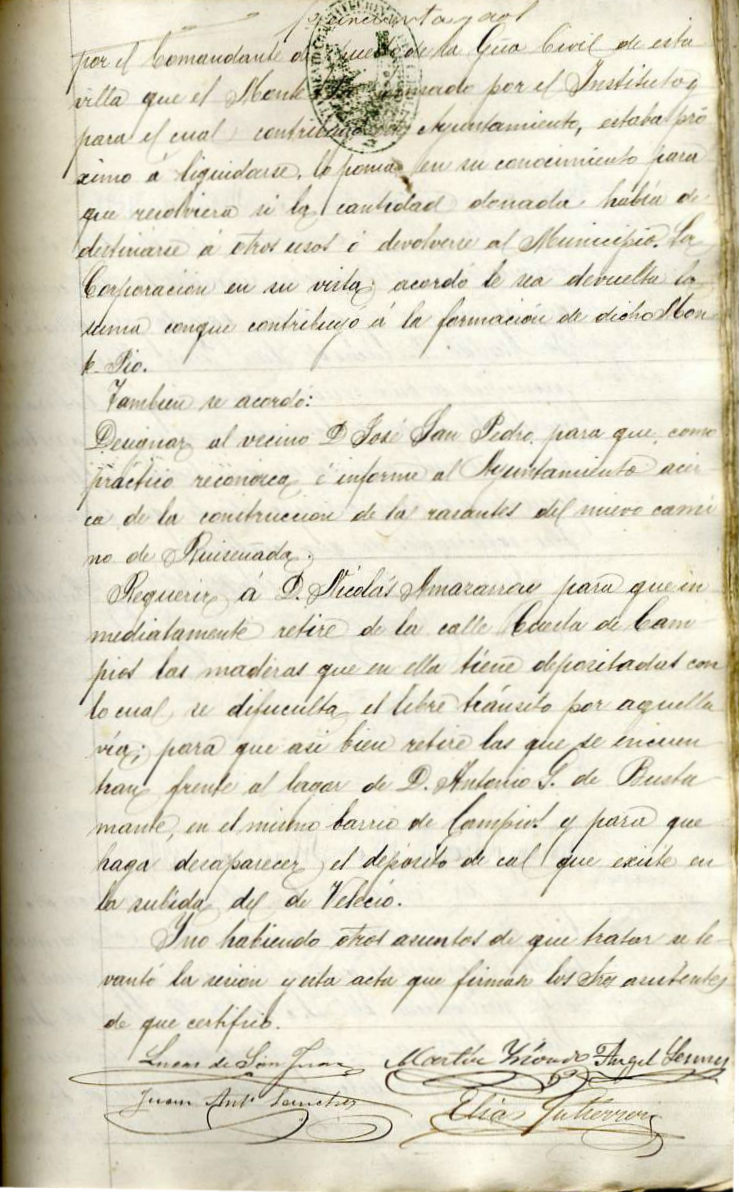 cincuenta y dos
por el Comandante del puesto de la Gûa Civil de esta
villa que el Monte pensado por el Instituto y
para el cual contribuyó este Ayuntamiento, estaba pró
ximo á liquidarse, lo ponía en su conocimiento para
que resolviera si la cantidad donada había de
destinarse á otros usos ó devolverse al Municipio. La
Corporación en su vista, acordó le sea devuelta la
suma conque contribuyó á la formación de dicho Mon
te-Pio.
Tambien se acordó:
Designar al vecino D José San Pedro, para que, como
práctico reconozca é informe al Ayuntamiento acer
ca de la construccion de las rasantes del nuevo cami
no de Ruiseñada.
Requerir á D. Nicolás Amazarray para que in
mediatamente retire de la calle Cuesta de Cam
pios las maderas que en ella tiene depositadas con
lo cual, se dificulta el libre tránsito por aquella
vía; para que asi bien retire las que se encuen
tran frente al lagar de D. Antonio S. de Busta
mante, en el mismo barrio de Campios y para que
haga desaparecer el depósito de cal que existe en
la subida del de Velecio.
Y no habiendo otros asuntos de que tratar se le-
vantó la sesion y esta acta que firman los Sres asistentes
de que certifico.
Lucas de San Juan Martín Angel
Juan Antº Sanchez Elías Gutierrez